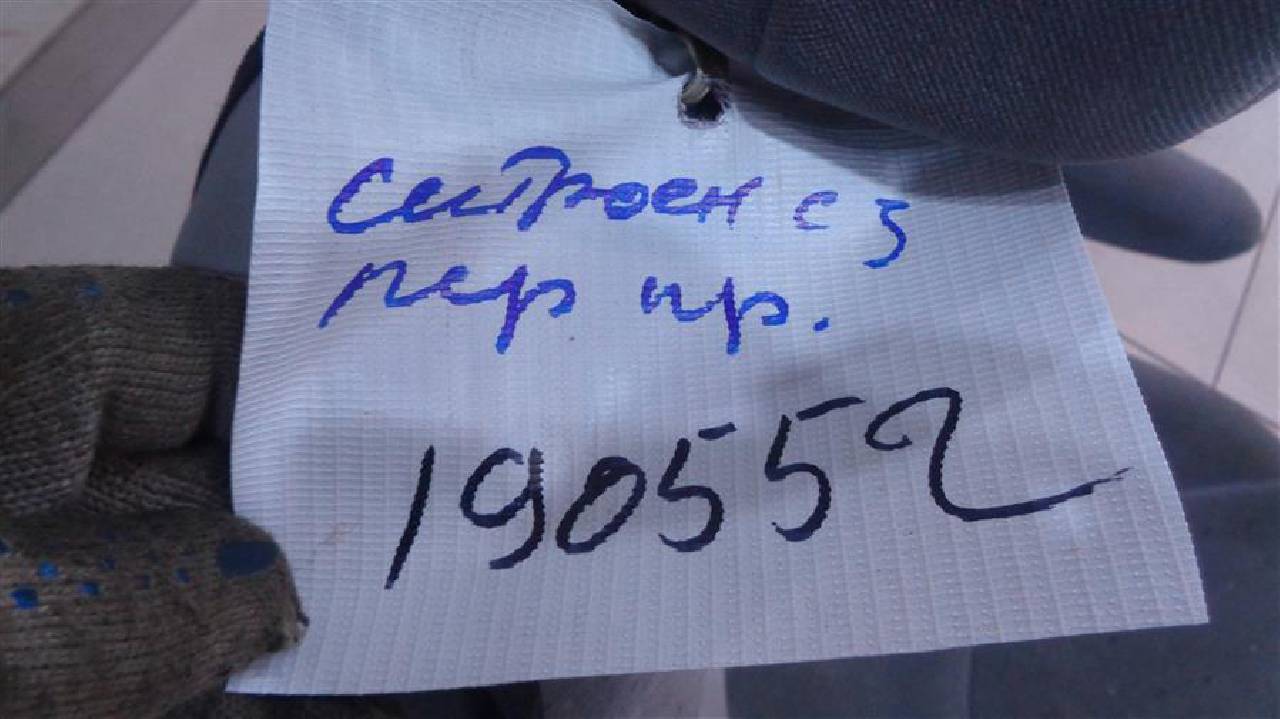 Ситроен с 3
пер пр.
190552